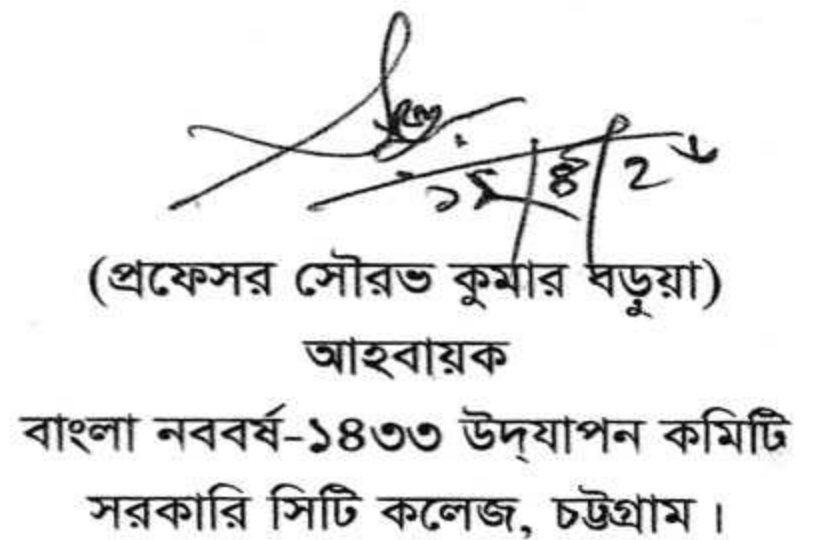 (প্রফেসর সৌরভ কুমার বড়ুয়া)
আহবায়ক
বাংলা নববর্ষ-১৪৩৩ উদ্‌যাপন কমিটি
সরকারি সিটি কলেজ, চট্টগ্রাম।